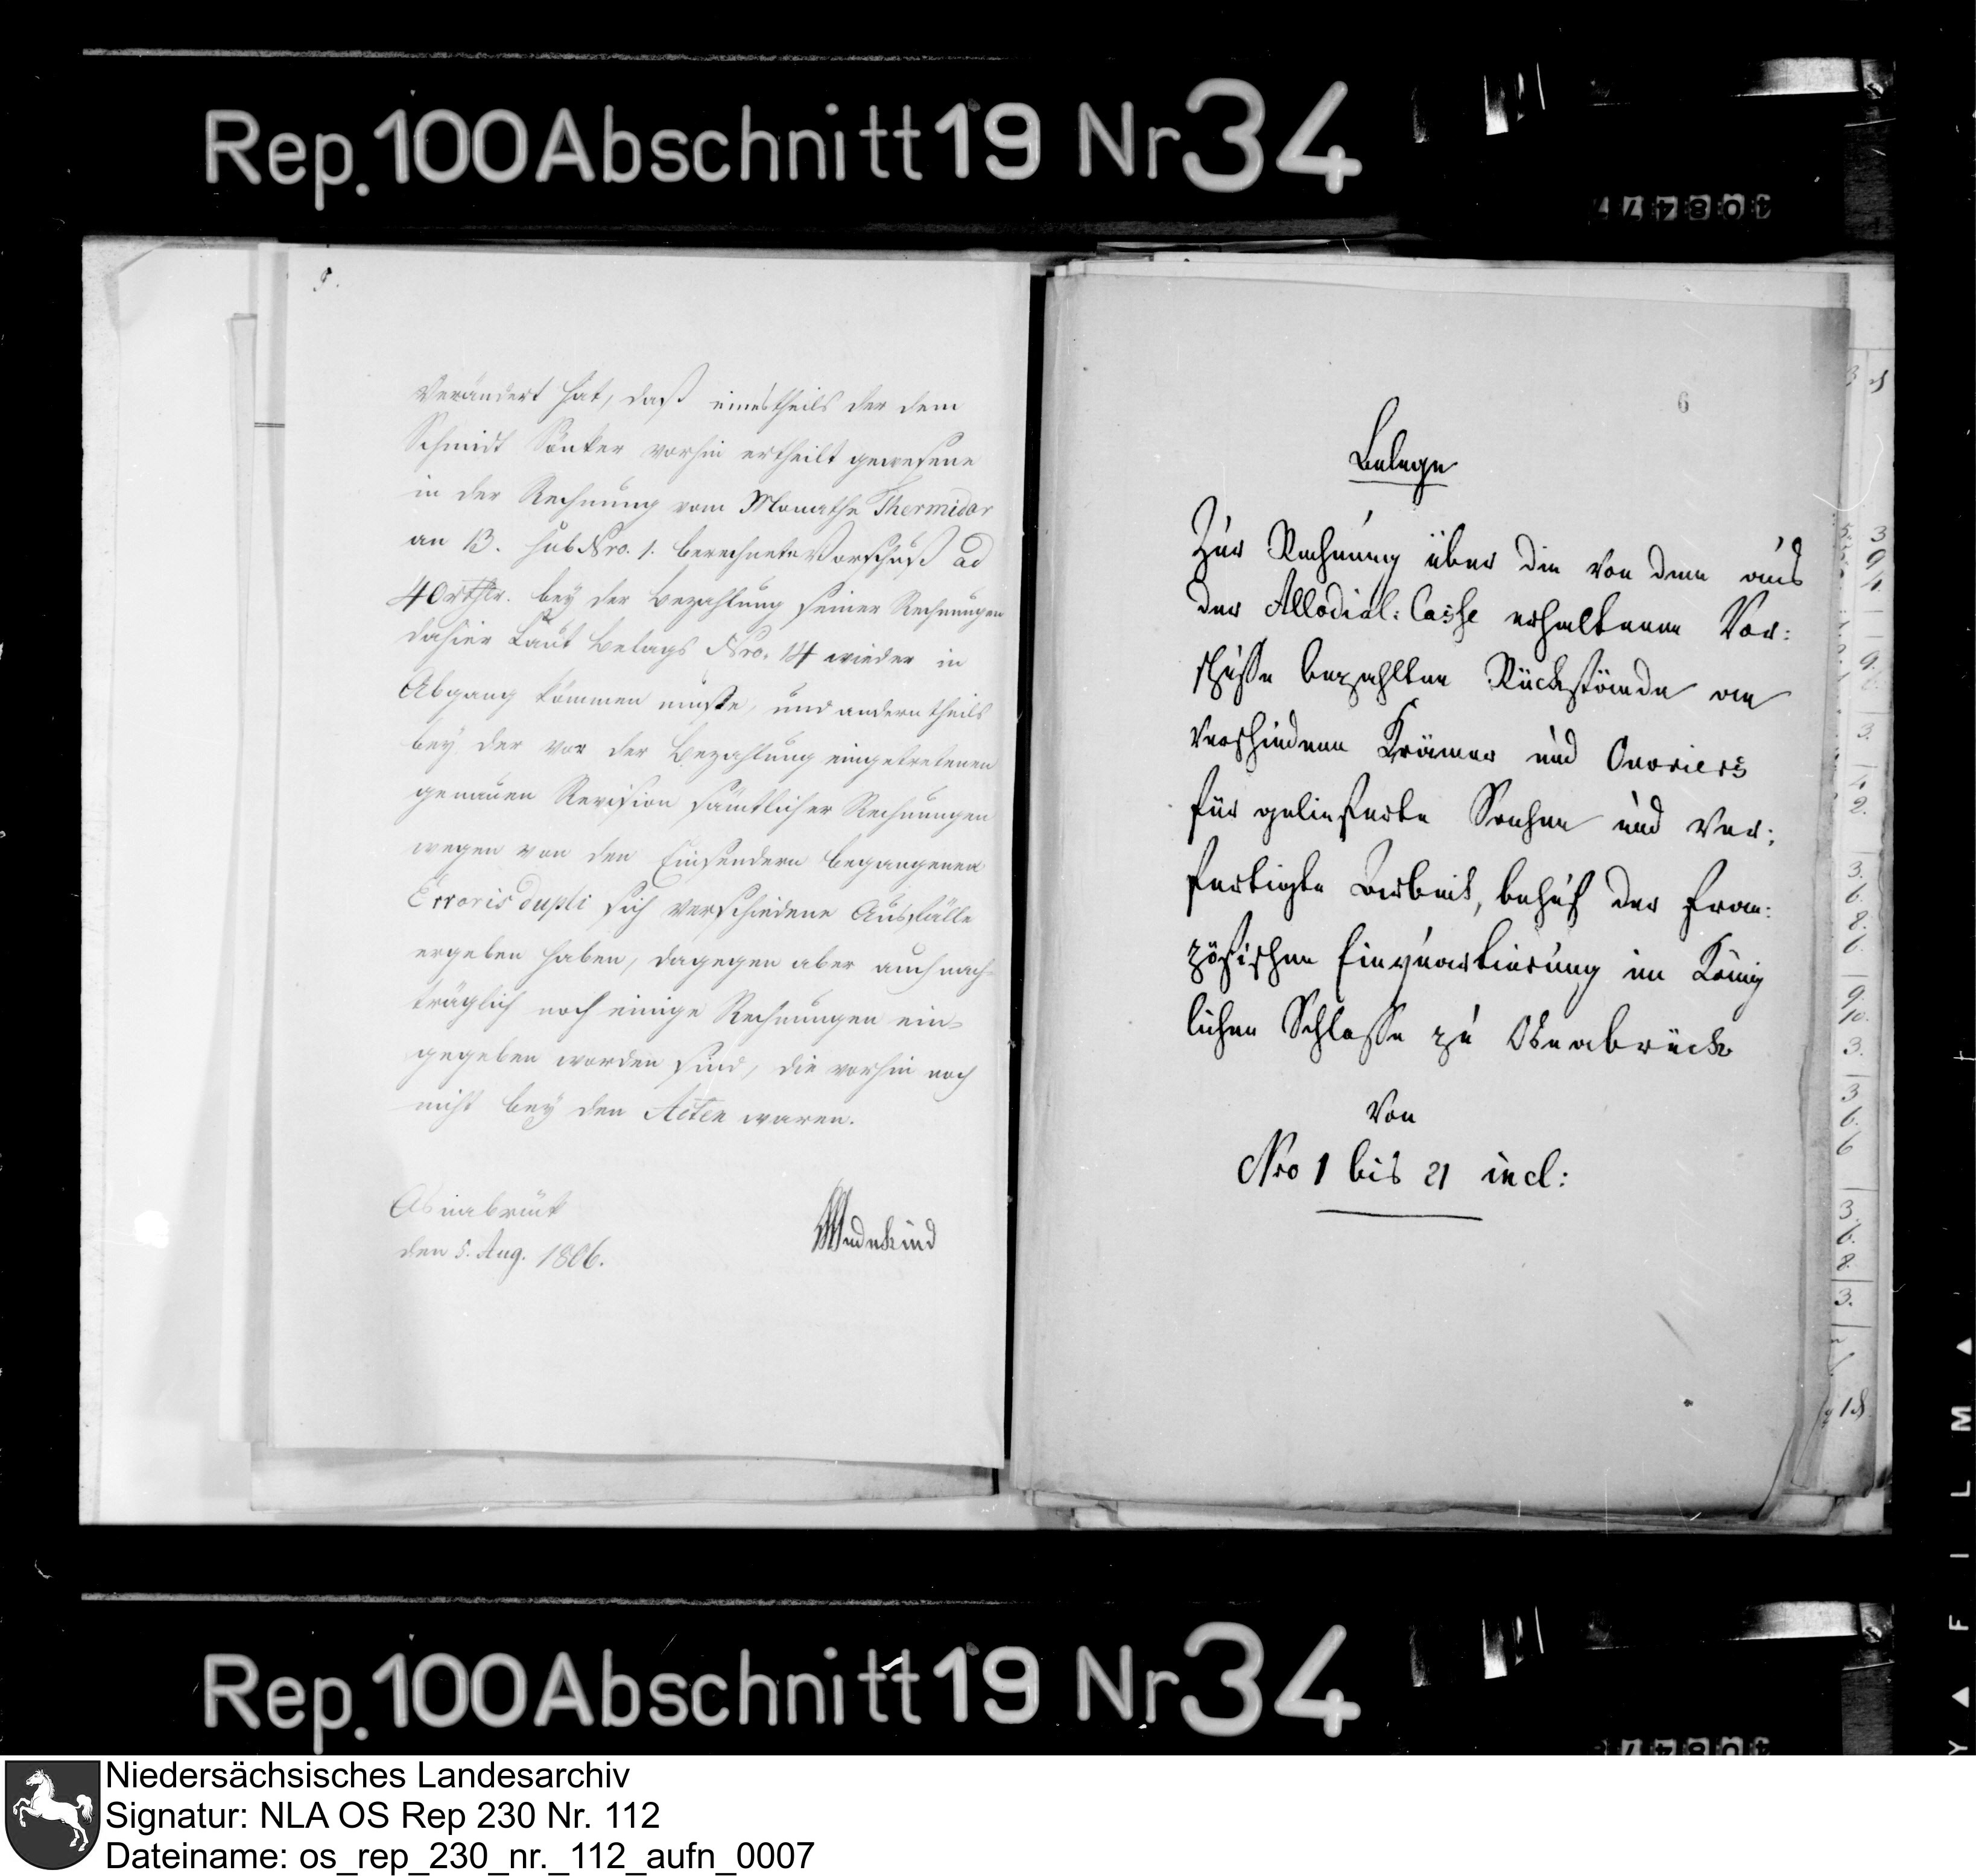 Rep. 100 Abschnitt 19 Nr 34
verändert hat, daß einestheils der dem
Schmidt Sönker vorhin ertheilt gewesene
in der Rechnung vom Monathe Thermidor
an 13. sub Nro. 1. berechnete Vorschuß ad
40 rthlr. bey der Bezahlung seiner Rechnungen
dahier Laut Belags Nro. 14 wieder in
Abgang kommen mußte, und anderntheils
bey der vor der Bezahlung eingetretenen
genauen Revision sämtlicher Rechnungen
wegen von den Einsendern begangenen
Erroris dupli sich verschiedene Ausfälle
ergeben haben, dagegen aber auch nach-
träglich noch einige Rechnungen ein-
gegeben worden sind, die vorhin noch
nicht bey den Acten waren.
Osnabrück
den 5. Aug. 1806.
Wedekind
6
Belege
Zur Rechnung über die von dem aus
der Allodial: Casse erhaltenen Vor:
schüsse bezahlten Rückstände an
verschiedene Krämer und Ouvriers
für gelieferte Sachen und ver:
fertigte Arbeit, behuf der Fran:
zösischen Einquartierung im König
lichen Schlosse zu Osnabrück
Von
Nro 1 bis 21 incl:
Rep. 100 Abschnitt 19 Nr 34
Niedersächsisches Landesarchiv
Signatur: NLA OS Rep 230 Nr. 112
Dateiname: os_rep_230_nr._112_aufn_0007